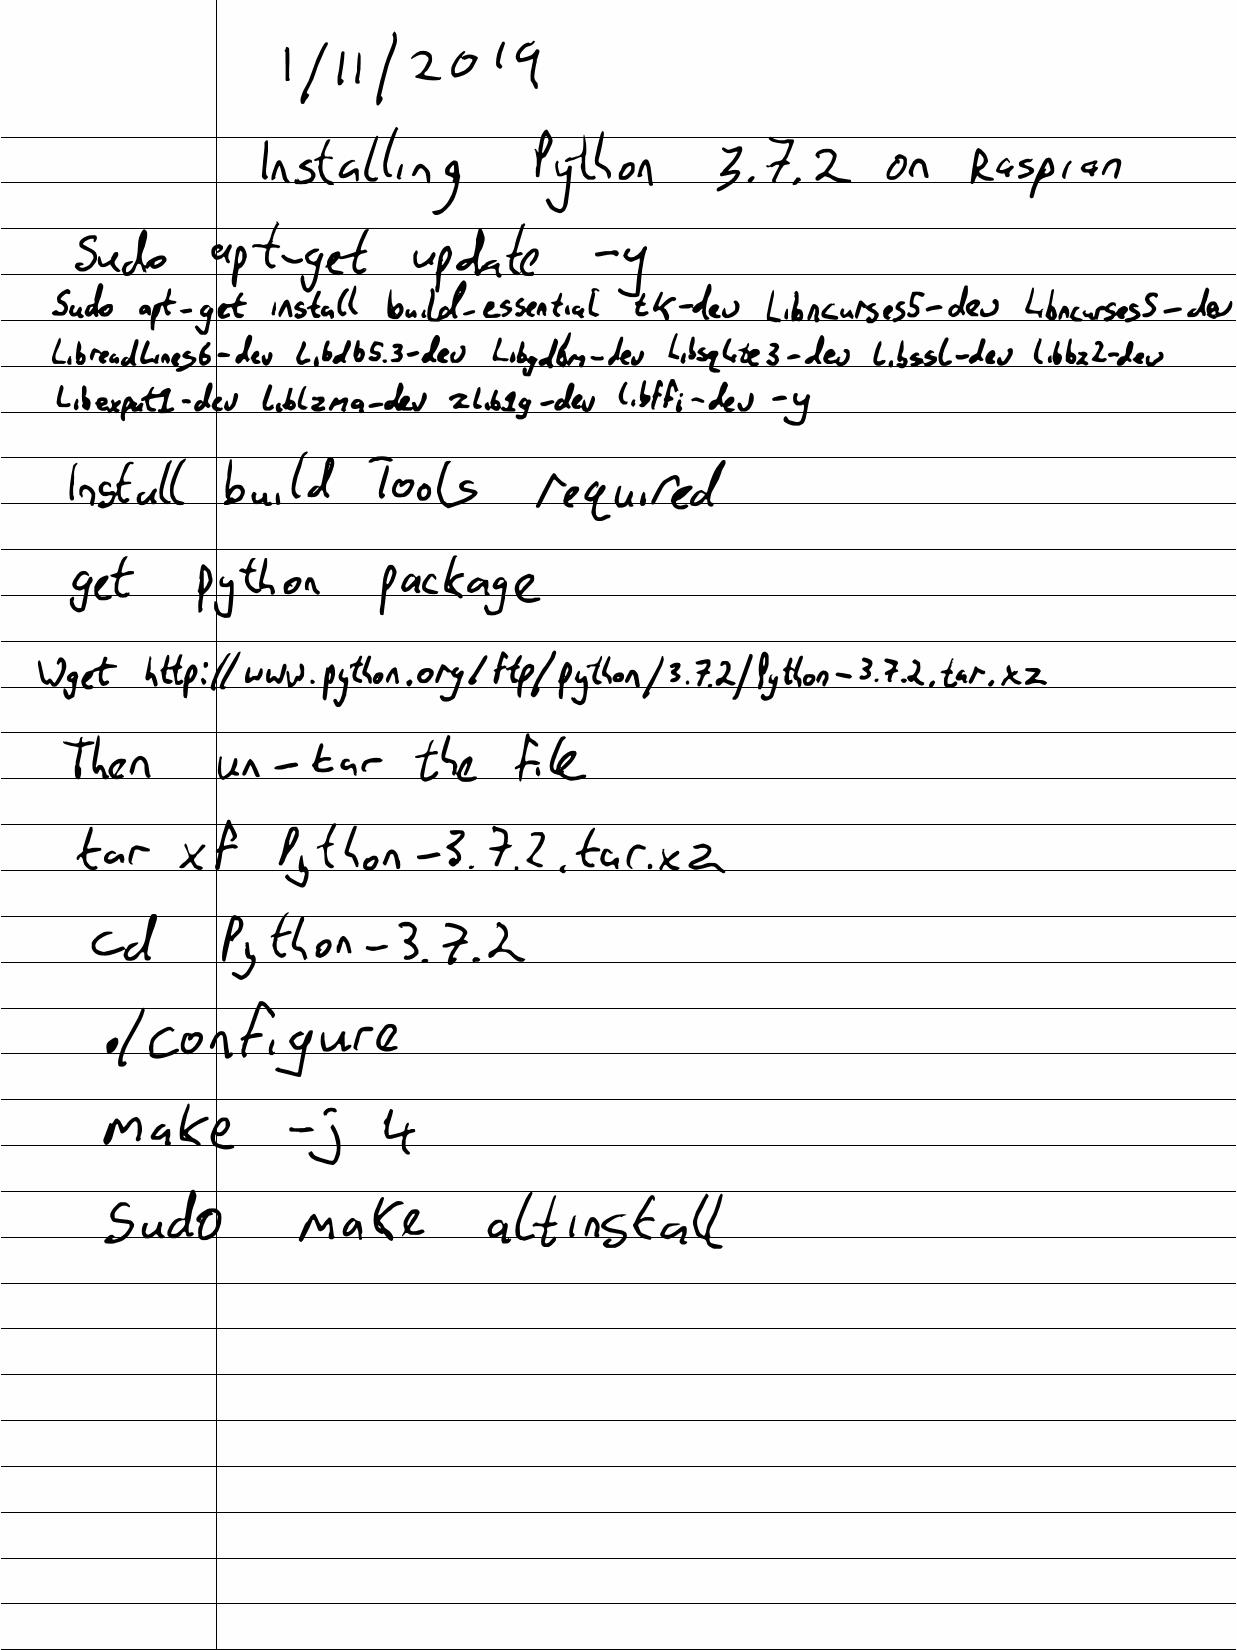 1/11/2019
Installing Python 3.7.2 on Raspian
Sudo apt-get update -y
Sudo apt-get install build-essential tk-dev Libncurses5-dev Libncurses5-dev
Libreadlines6-dev Libdb5.3-dev Libgdbm-dev Libsqlite3-dev Libssl-dev Libbz2-dev
Libexpat1-dev Liblzma-dev zlib1g-dev Libffi-dev -y
Install build Tools required
get python package
Wget http://www.python.org/ftp/python/3.7.2/Python-3.7.2.tar.xz
Then un-tar the file
tar xf Python-3.7.2.tar.xz
cd Python-3.7.2
./configure
make -j 4
Sudo make altinstall